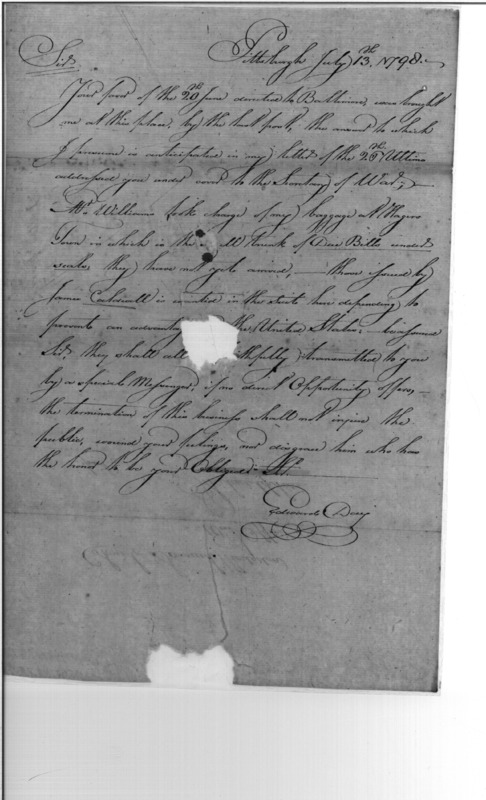 Pittsburgh July 13th 1798.
Sir,
Your favor of the 20th June directed to Baltimore, was brought
me at this place, by the last post, the answer to which
I presume is anticipated in my letter of the 26th Ultimo
addressed you under cover to the Secretary of War;
Mr. Williams took charge of my baggage at Hagers
Town in which is the small Trunk of Due Bills under
seals, they have not yet arrived, — those issued by
James is in the here depending to
prevent an the United States: be assured
Sir, they shall all thfully transmitted to you
by a special Messenger, if no direct Opportunity offers,
the termination of this business shall not injure the
public, wound your feelings, nor disgrace him who has
the honor to be your Obliged St.
Edward Day